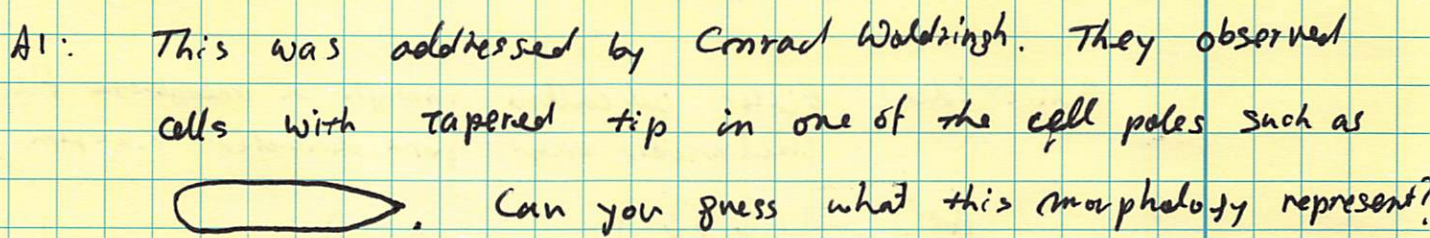 A1: This was addressed by Conrad Woldringh. They observed
cells with tapered tip in one of the cell poles such as
. Can you guess what this morphology represent?